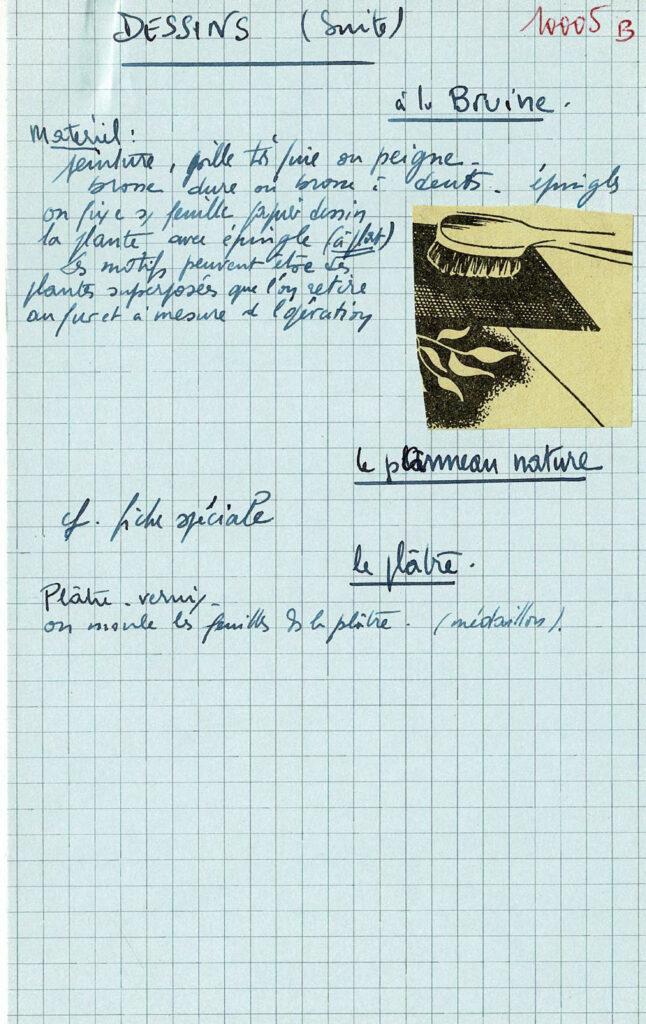 DESSINS (Suite) 10005 B
à la Bruine.
Matériel :
peinture, grille très fine ou peigne -
brosse dure ou brosse à dents - épingles
on fixe s/ feuille papier dessin
la plante avec épingle (à plat)
Les motifs peuvent être des
plantes superposées que l'on retire
au fur et à mesure de l'opération
le panneau nature
cf. fiche spéciale
le plâtre.
Plâtre - vernis -
on moule les feuilles ds le plâtre. (médaillons).